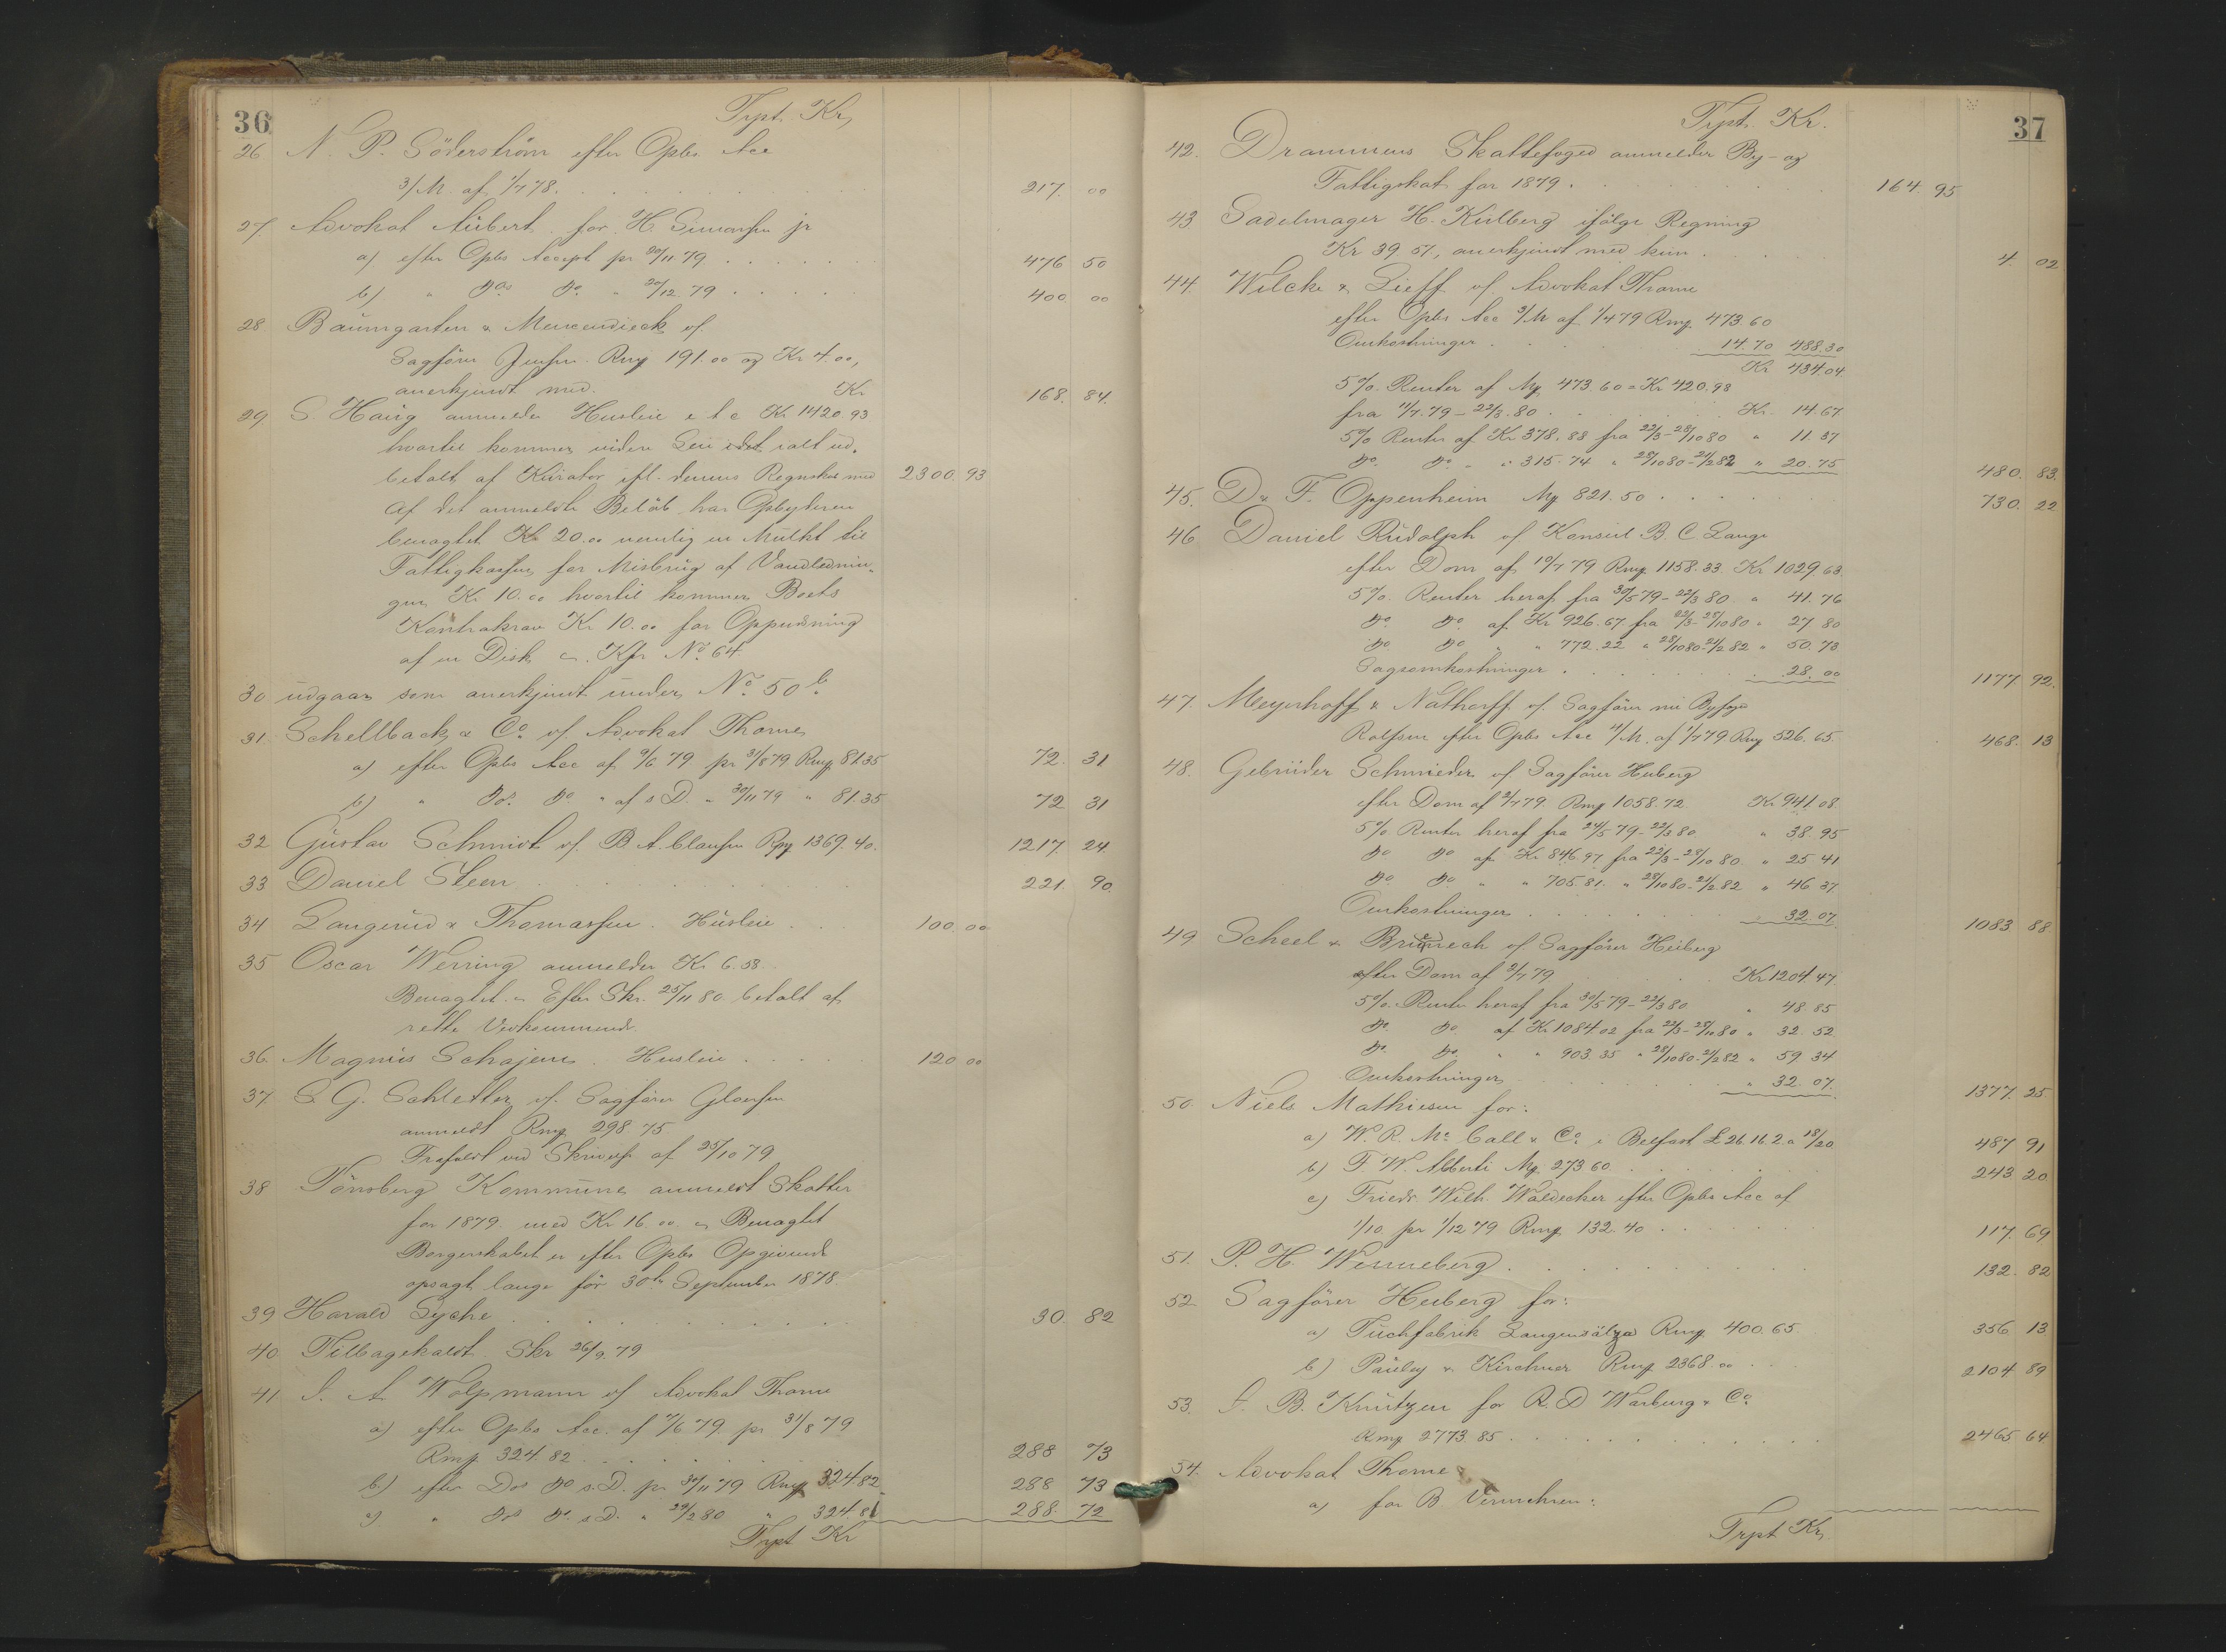 36
Trpt. Kr,
26 N. P. Söderström efter Opbs Acc
3/M. af 1/7 78. 217. 00
27. Advokat Aubert for H. Simonsen jr
a) efter Opbs Accept pr 20/11 79 476 50
b) " Dos Do " 20/12 79 400 00
28. Baumgarten & Mensendieck v/
Sagförer Jensen Rmp 191.00 og Kr 4.00,
anerkjendt med. Kr 168. 84.
29 S. Haug anmelder Husleie etc Kr 1420 93
hvortil kommer videre Leie idet ialt ud-
betalt af Kurator ifl. dennes Regnskab med 2300. 93
Af det anmeldte Beløb har Opbyderen
benægtet Kr 20.00 nemlig en Mulkt til
Fattigkassen for Misbrug af Vandlednin-
gen Kr 10.00 hvortil kommer Boets
Kontrakrav Kr 10.00 for Oppudsning
af en Disk cn. Kfr No 64.
30 udgaar som anerkjendt under No 50 b.
31. Schellback & Co v/ Advokat Thorne
a) efter Opbs Acc af 9/6 79 pr 31/8 79 Rmp 81.35 72. 31
b) " Dos Do " af s. D. " 30/11 79 " 81.35 72 31
32 Gustav Schmidt v/ B. A. Clausen Rmp 1369.40. 1217. 24.
33 Daniel Steen 221. 90.
34 Langerud & Thomassen. Husleie 100.00
35 Oscar Werring anmelder Kr 6.58.
Benægtet. - Efter Skr. 25/11 80 betalt af
rette Vedkommende.
36 Magnus Schajem. Husleie 120 00
37 S. G. Schletter v/ Sagfører Gloersen
anmeldt Rmp 298 75.
Frafaldt ved Skrivelse af 25/10 79
38 Tönsberg Kommune anmeldt Skatter
for 1879 med Kr 16.00. cn Benægtet
Borgerskabet er efter Opbs Opgivende
opsagt længe før 30te September 1878.
39 Harald Lyche 30. 82
40. Tilbagekaldt Skr 26/9. 79
41. I. A. Wolpmann v/ Advokat Thorne
a) efter Opbs Acc. af 7/6 79 pr 31/8 79
Rmp 324.82 288 73
b) efter Dos Do s. D. pr 30/11 79 Rmp 324.82 288 73
c) " Dos Do s. D. " 29/2 80 " 324.81 288. 72
Trpt Kr
37
Trpt. Kr.
42. Drammens Skattefoged anmelder By- og
Fattigskat for 1879. 164. 95
43 Sadelmager H. Kulberg ifölge Regning
Kr 39 57, anerkjendt med kun 4. 02
44 Wilcke & Lieff v/ Advokat Thorne
efter Opbs Acc 3/M af 1/4 79 Rmp 473.60
Omkostninger 14.70 488.30
Kr 434.04.
5%. Renter af Mp 473.60 = Kr 420.98
fra 11/7. 79 - 22/3. 80 Kr. 14.67
5% Renter af Kr 378.88 fra 22/3 - 28/10 80 " 11.37
Do. Do. " " 315.74 " 28/10 80 - 21/2 82 " 20.75 480. 83.
45. Dr F. Oppenheim Mp 821.50 730. 22
46 Daniel Rudolph v/ Konsul B. C. Lange
efter Dom af 10/7 79 Rmp 1158.33 Kr 1029.63.
5%. Renter heraf fra 30/5 79 - 22/3 80 " 41.76
Do. Do. af Kr 926.67 fra 22/3 - 28/10 80 " 27 80
Do Do " " 772.22 " 28/10 80 - 21/2 82 " 50.73
Sagsomkostninger 28.00 1177 92.
47. Meyerhoff & Nathorff v/ Sagförer nu Byfoged
Rolfsen efter Opbs Acc 4/M. af 1/4 79 Rmp 526.65. 468. 13
48. Gebrüder Schmieder v/ Sagförer Heiberg
efter Dom af 2/7 79. Rmp 1058.72. Kr 941.08.
5% Renter heraf fra 24/5 79 - 22/3 80 " 38.95
Do Do af Kr 846.97 fra 22/3 - 28/10 80 " 25 41
Do. Do. " " 705.81. " 28/10 80 - 21/2 82 " 46 37.
Omkostninger 32.07. 1083 88
49 Scheel & v/ Sagförer Heiberg
efter Dom af 2/7 79 Kr 1204.47.
5%. Renter heraf fra 30/5 79 - 22/3 80 " 48 85
Do Do af Kr 1084.02 fra 22/3 - 28/10 80 " 32. 52
Do. Do. " " 903.35 " 28/10 80 - 21/2 82 " 59 34
Omkostninger " 32.07. 1377. 25
50. Niels Mathiesen for:
a) W. R. Mc Call & Co i Belfast £ 26.16.2 a 18/20 487 91
b) F. W. Alberti Mp 273 60 243 20
c) Friedr Wilh. Waldecker efter Opbs Acc af
1/10 pr 1/12 79 Rmp 132.40 117. 69
51. P. H. Wenneberg 132. 82
52 Sagförer Heiberg for:
a) Tuchfabrik Langensalza Rmp 400.65. 356 13
b) Pauley & Kirchner Rmp 2368.00 2104 89
53. I. B. Knutzen for R. D. Warburg & Co
Rmp 2773.85 2465 64
54. Advokat Thorne
a) for B. Vermehren:
Trpt Kr.